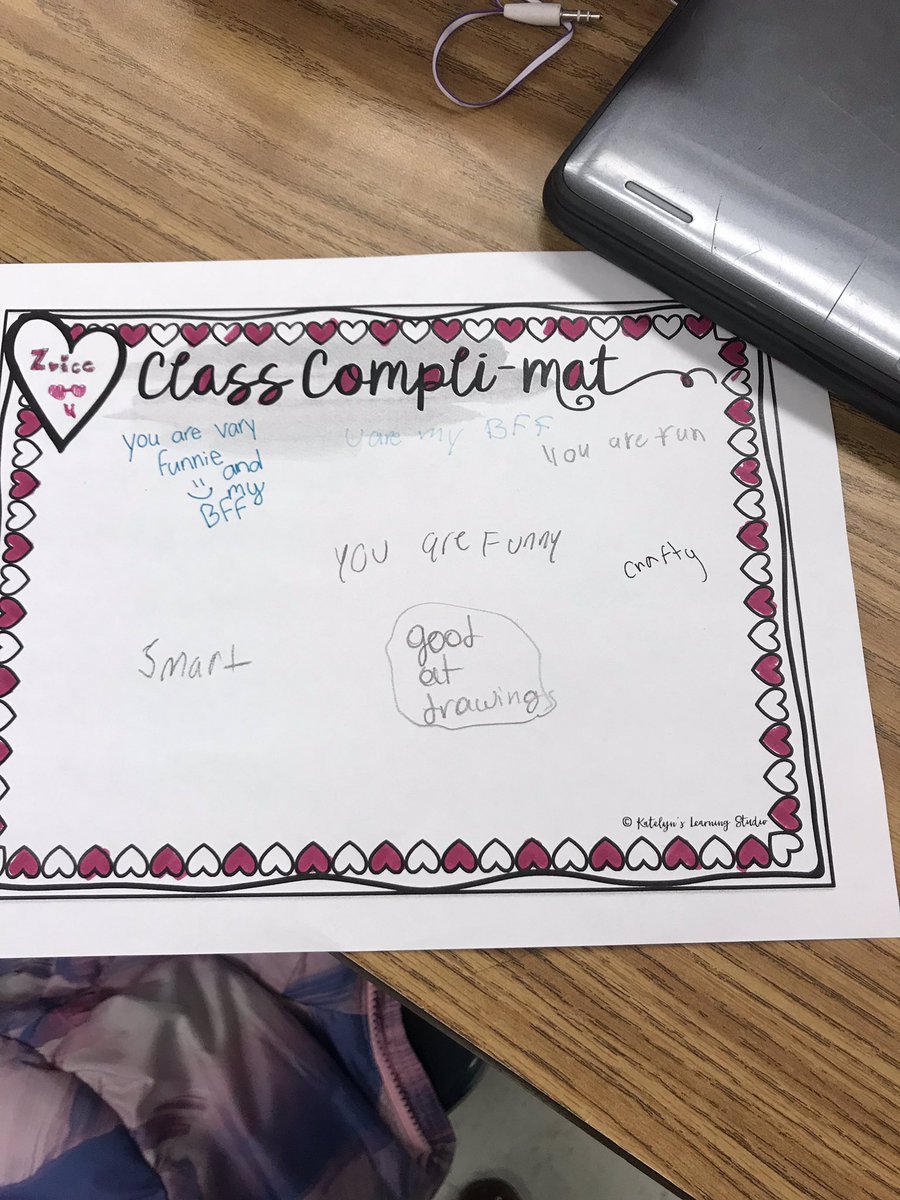 Class Compli-mat
you are vary
funnie and
my
BFF
U are my BFF
You are fun
YOU are Funny
crafty
Smart
good
at
drawings
© Katelyn's Learning Studio